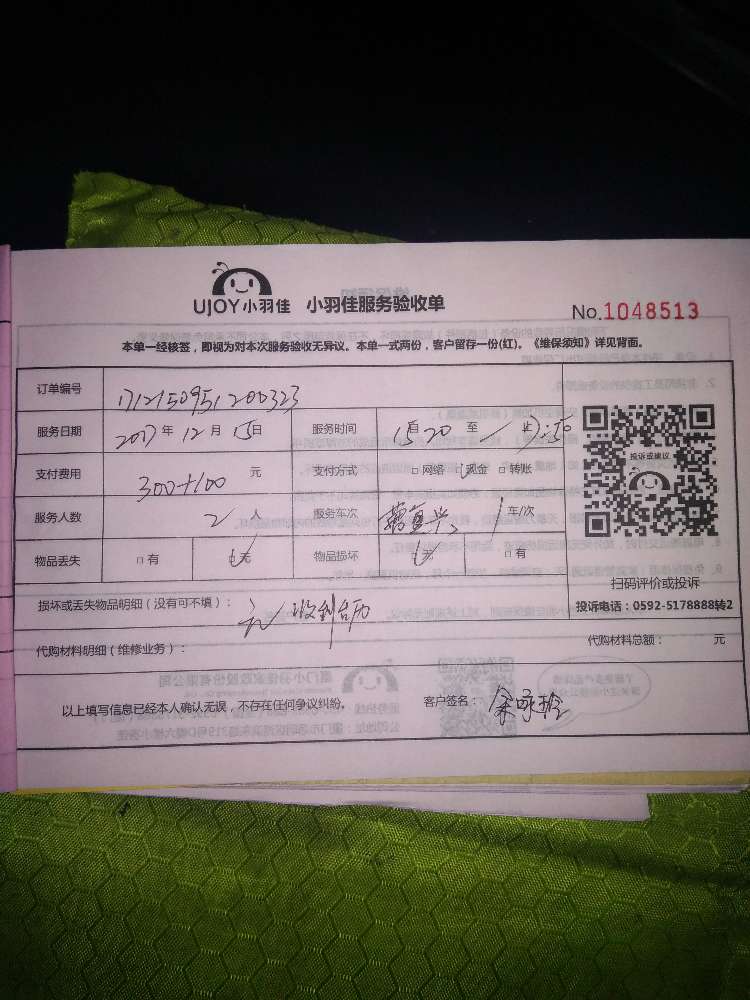 UJOY小羽佳 小羽佳服务验收单
No.1048513
本单一经核签，即视为对本次服务验收无异议。本单一式两份，客户留存一份(红)。《维保须知》详见背面。
订单编号 1712150951200323
服务日期 2017年12月15日 服务时间 15:20 至
支付费用 300+100 元 支付方式 □网络 □现金 □转账
服务人数 2人 服务车次 1车/次
物品丢失 □有 □无 物品损坏 □无 □有
投诉或建议
扫码评价或投诉
投诉电话：0592-5178888转2
损坏或丢失物品明细（没有可不填）： 无 收到台历
代购材料明细（维修业务）： 代购材料总额： 元
以上填写信息已经本人确认无误，不存在任何争议纠纷。 客户签名：